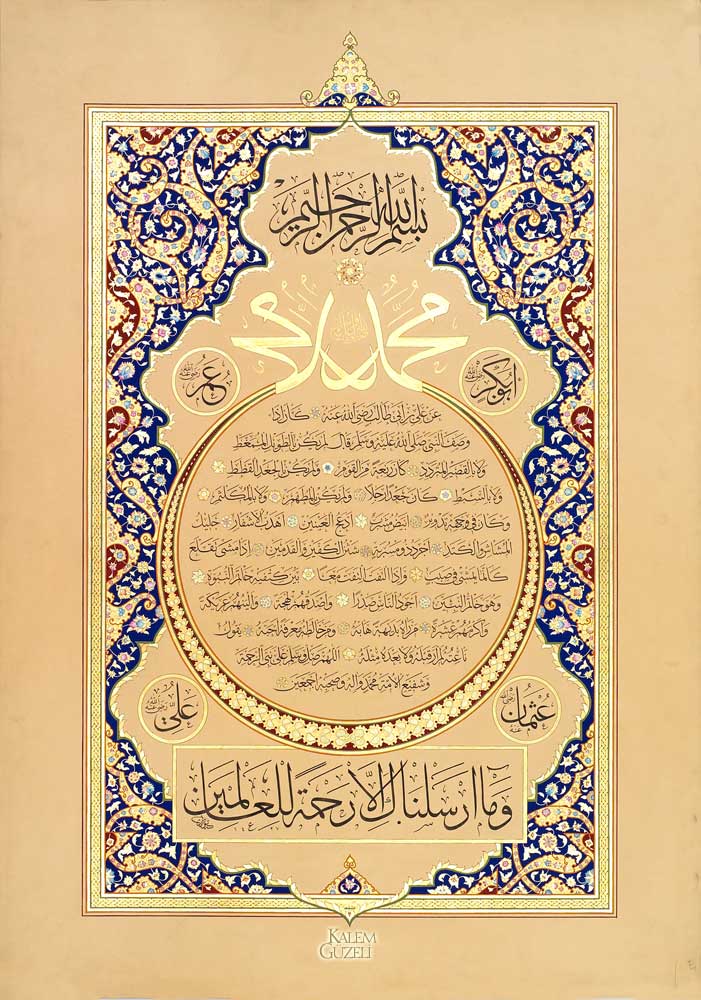 بسم الله الرحمن الرحيم
محمد
عليه السلام
ابوبكر رضي الله عنه
عمر رضي الله عنه
عن علي بن أبي طالب رضي الله عنه كان إذا
وصف النبي صلى الله عليه وسلم قال لم يكن بالطويل الممغط
ولا بالقصير المتردد كان ربعة من القوم ولم يكن بالجعد القطط
ولا بالسبط كان جعدا رجلا ولم يكن بالمطهم ولا بالمكلثم
وكان في وجهه تدوير أبيض مشرب أدعج العينين أهدب الأشفار جليل
المشاش والكتد أجرد ذو مسربة شثن الكفين والقدمين إذا مشى تقلع
كأنما يمشي في صبب وإذا التفت التفت معا بين كتفيه خاتم النبوة
وهو خاتم النبيين أجود الناس صدرا وأصدقهم لهجة وألينهم عريكة
وأكرمهم عشرة من رآه بديهة هابه ومن خالطه معرفة أحبه يقول
ناعته لم أر قبله ولا بعده مثله اللهم صل وسلم على نبي الرحمة
وشفيع الأمة محمد وآله وصحبه أجمعين
عثمان رضي الله عنه
علي رضي الله عنه
وما أرسلناك إلا رحمة للعالمين
KALEM
GÜZELİ